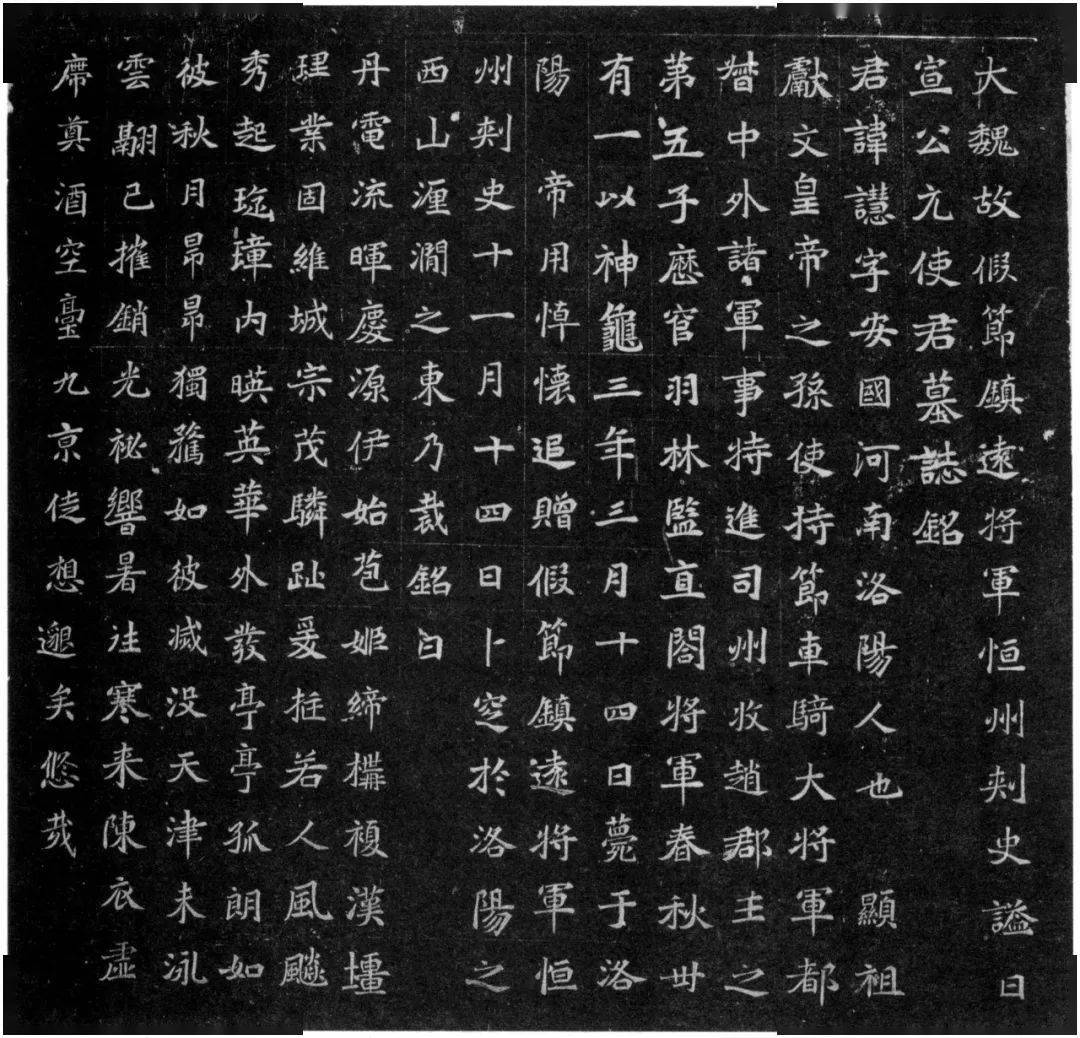 大魏故假節鎮遠將軍恒州刾史謚曰
宣公元使君墓誌銘
君諱譿字安國河南洛陽人也 顯祖
獻文皇帝之孫使持節車騎大將軍都
督中外諸軍事特進司州牧趙郡王之
第五子歷官羽林監直閤將軍春秋丗
有一以神龜三年三月十四日薨于洛
陽 帝用悼懷追贈假節鎮遠將軍恒
州刾史十一月十四日卜窆於洛陽之
西山瀍澗之東乃裁銘曰
丹電流暉慶源伊始苞姬締構複漢壃
理業固維城宗茂驎趾爰挺若人風飈
秀起琁璋内暎英華外發亭亭孤朗如
彼秋月昂昂獨騖如彼滅没天津未泳
雲翮已摧銷光祕響暑往寒来陳衣虛
席奠酒空臺九京徒想邈矣悠哉